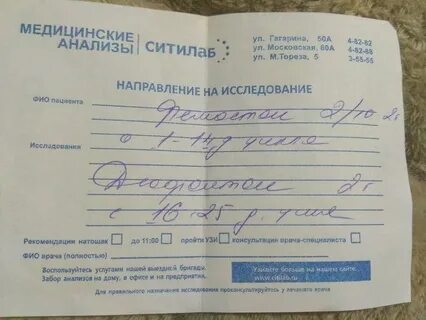 МЕДИЦИНСКИЕ АНАЛИЗЫ СИТИЛАБ
ул. Гагарина, 50А 4-82-82
ул. Московская, 60А 4-82-88
ул. М.Тореза, 5 3-55-55
НАПРАВЛЕНИЕ НА ИССЛЕДОВАНИЕ
ФИО пациента Фемостон 2/10 2г
Исследования с 1-14 д цикла
Дюфастон 2г
с 16-25 д. цикла
Рекомендации натощак до 11:00 пройти УЗИ консультации врача-специалиста
ФИО врача (полностью)
Воспользуйтесь услугами нашей выездной бригады.
Забор анализов на дому, в офисе и на предприятии.
Узнайте больше на нашем сайте...
Для правильного назначения исследования проконсультируйтесь у лечащего врача